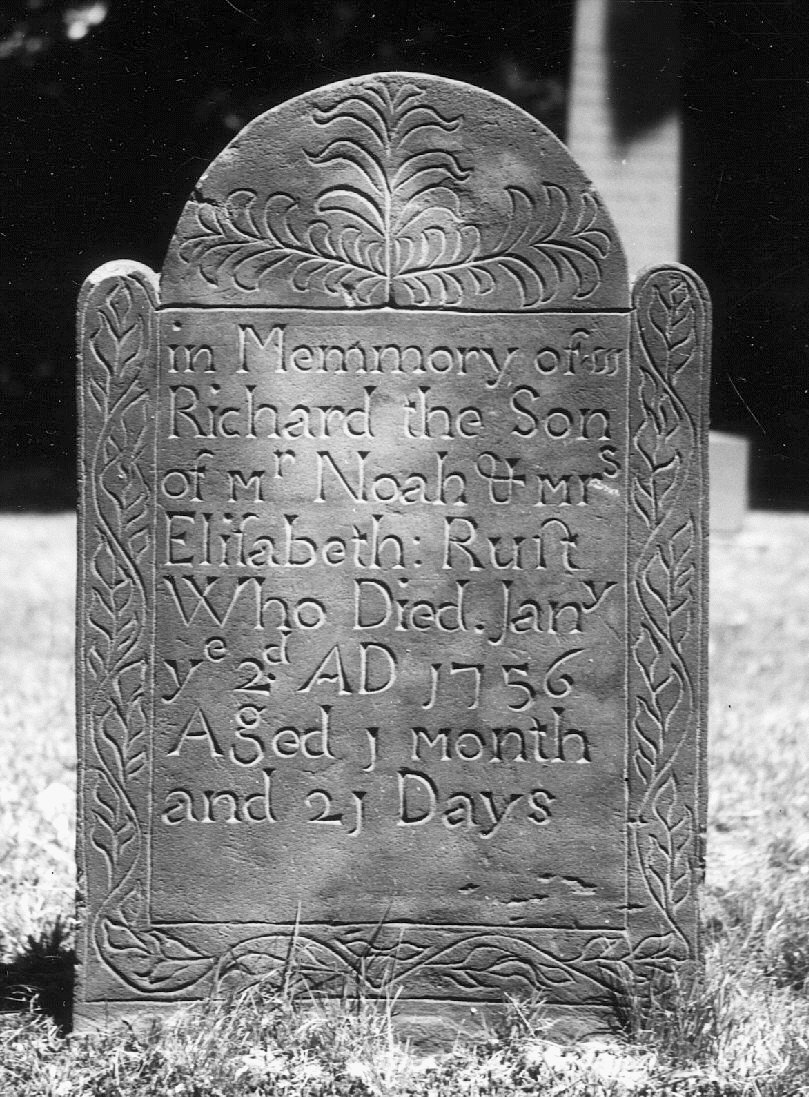 in Memmory of
Richard the Son
of Mʳ Noah & Mrˢ
Eliſabeth: Ruſt
Who Died. Janʸ
yᵉ 2.ᵈ AD 1756
Aged 1 Month
and 21 Days